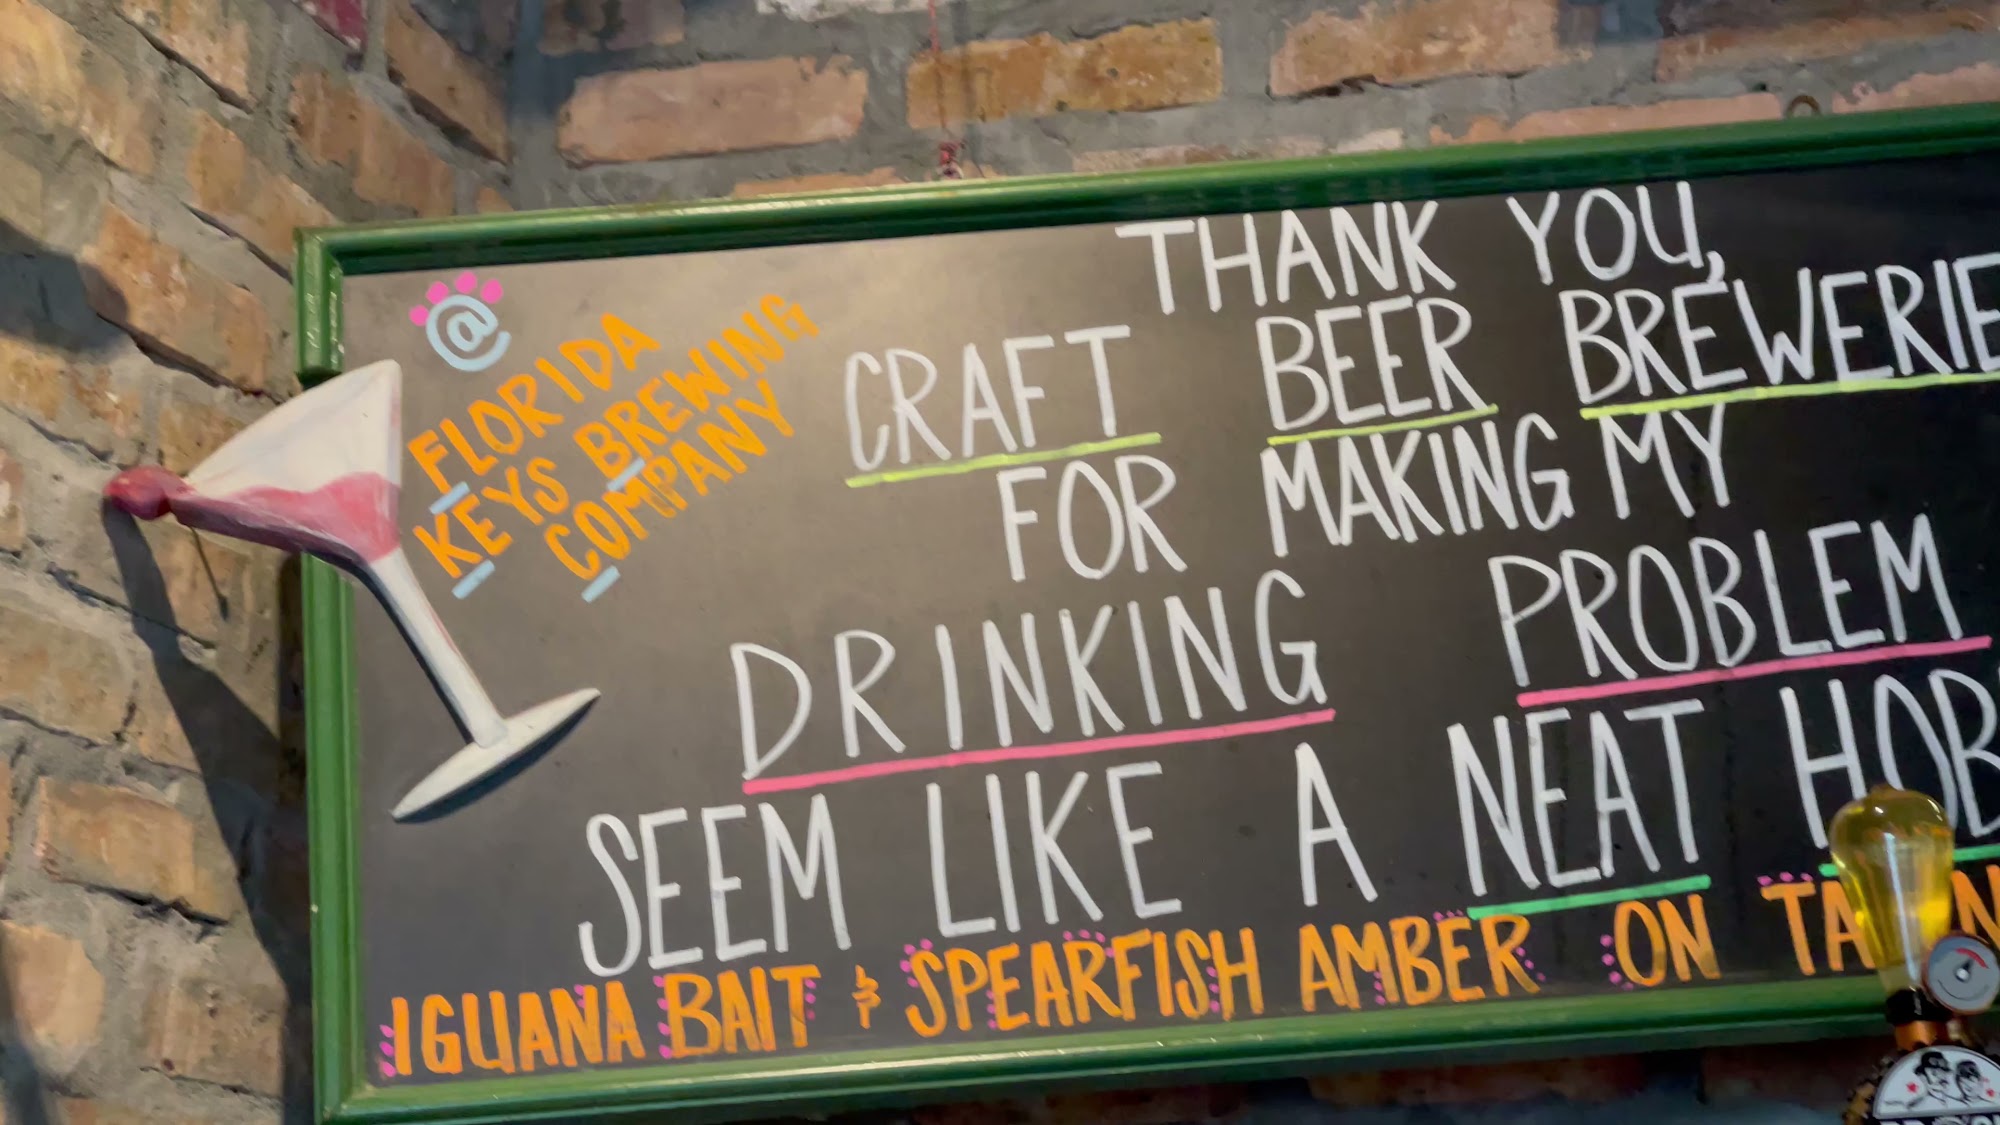 @
FLORIDA
KEYS BREWING
COMPANY
THANK YOU,
CRAFT BEER BREWERIE
FOR MAKING MY
DRINKING PROBLEM
SEEM LIKE A NEAT HOB
IGUANA BAIT & SPEARFISH AMBER ON TA